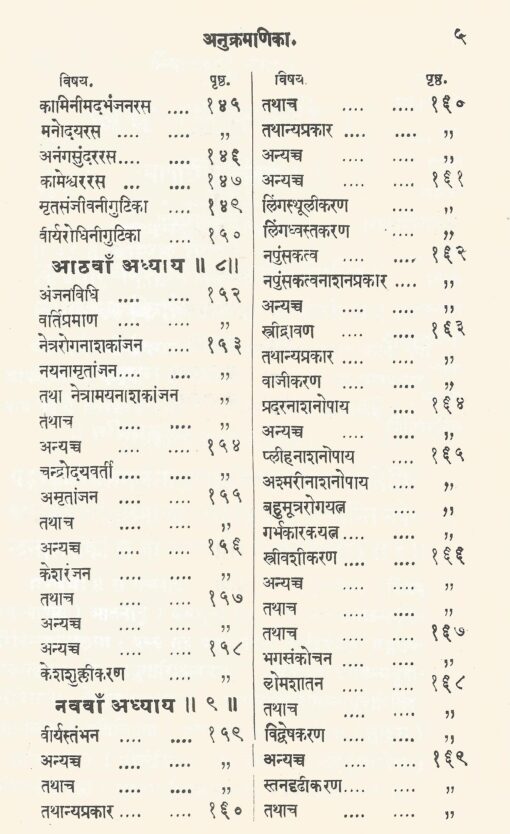 अनुक्रमणिका. ५
विषय. पृष्ठ.
कामिनीमदभंजनरस .... १४५
मनोदयरस .... .... ,,
अनंगसुंदररस.... .... १४६
कामेश्वररस ... ... १४७
मृतसंजीवनीगुटिका .... १४९
वीर्यरोधिनीगुटिका .... १५०
आठवाँ अध्याय ॥ ८॥
अंजनविधि .... .... १५२
वर्तिप्रमाण .... .... ,,
नेत्ररोगनाशकांजन .... १५३
नयनामृतांजन.... .... ,,
तथा नेत्रामयनाशकांजन ,,
तथाच .... .... ,,
अन्यच्च .... .... १५४
चन्द्रोदयवर्ती .... .... ,,
अमृतांजन .... .... १५५
तथाच .... .... ,,
अन्यच्च .... .... १५६
केशरंजन .... .... ,,
तथाच .... .... १५७
अन्यच्च .... .... ,,
अन्यच्च .... .... १५८
केशशुक्लीकरण .... ,,
नववाँ अध्याय ॥ ९ ॥
वीर्यस्तंभन .... .... १५९
अन्यच्च .... .... ,,
तथाच .... .... ,,
तथान्यप्रकार .... .... १६०
विषय. पृष्ठ.
तथाच .... .... १६०
तथान्यप्रकार .... .... ,,
अन्यच्च .... .... ,,
अन्यच्च .... .... १६१
लिंगस्थूलीकरण .... ,,
लिंगध्वस्तकरण .... ,,
नपुंसकत्व .... .... १६२
नपुंसकत्वनाशनप्रकार .... ,,
अन्यच्च .... .... ,,
स्त्रीद्रावण .... .... १६३
तथान्यप्रकार .... .... ,,
वाजीकरण .... .... ,,
प्रदरनाशनोपाय .... १६४
अन्यच्च .... .... ,,
प्लीहनाशनोपाय .... १६५
अश्मरीनाशनोपाय .... ,,
बहुमूत्ररोगयत्न .... ,,
गर्भकारकयत्न .... .... ,,
स्त्रीवशीकरण .... .... १६६
अन्यच्च .... .... ,,
तथाच .... .... ,,
तथाच .... .... १६७
भगसंकोचन .... .... ,,
लोमशातन .... .... १६८
तथाच .... .... ,,
विद्वेषकरण .... .... ,,
अन्यच्च .... .... १६९
स्तनदृढीकरण.... .... ,,
तथाच .... .... ,,